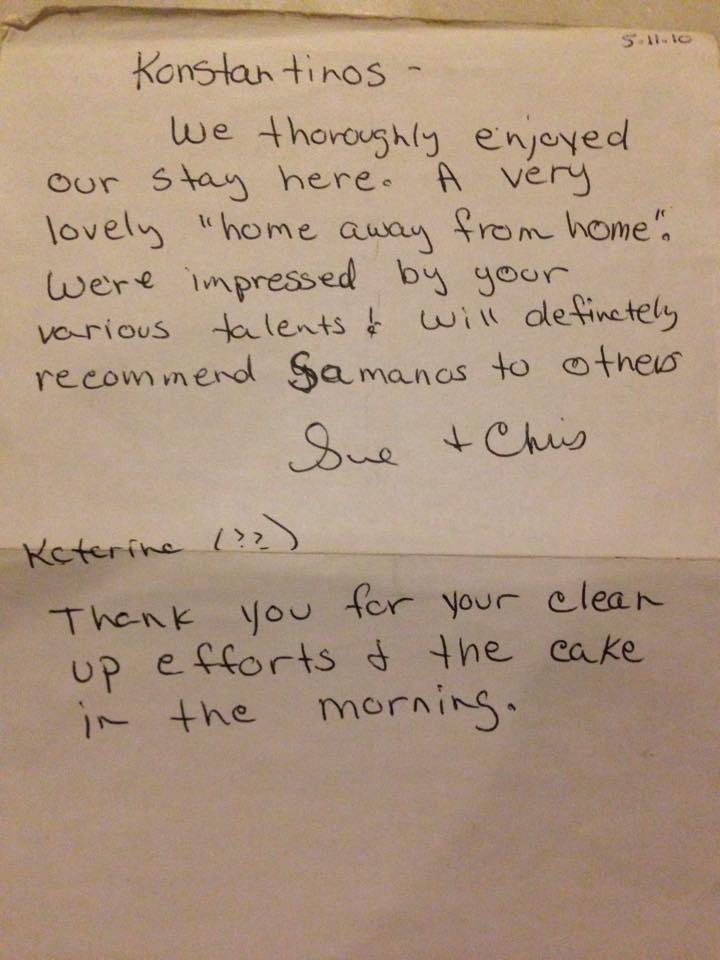 5.11.10
Konstantinos -
We thoroughly enjoyed
our stay here. A very
lovely "home away from home".
We're impressed by your
various talents & will definetely
recommend Samanas to others
Sue + Chris
Katerina (??)
Thank you for your clean
up efforts & the cake
in the morning.